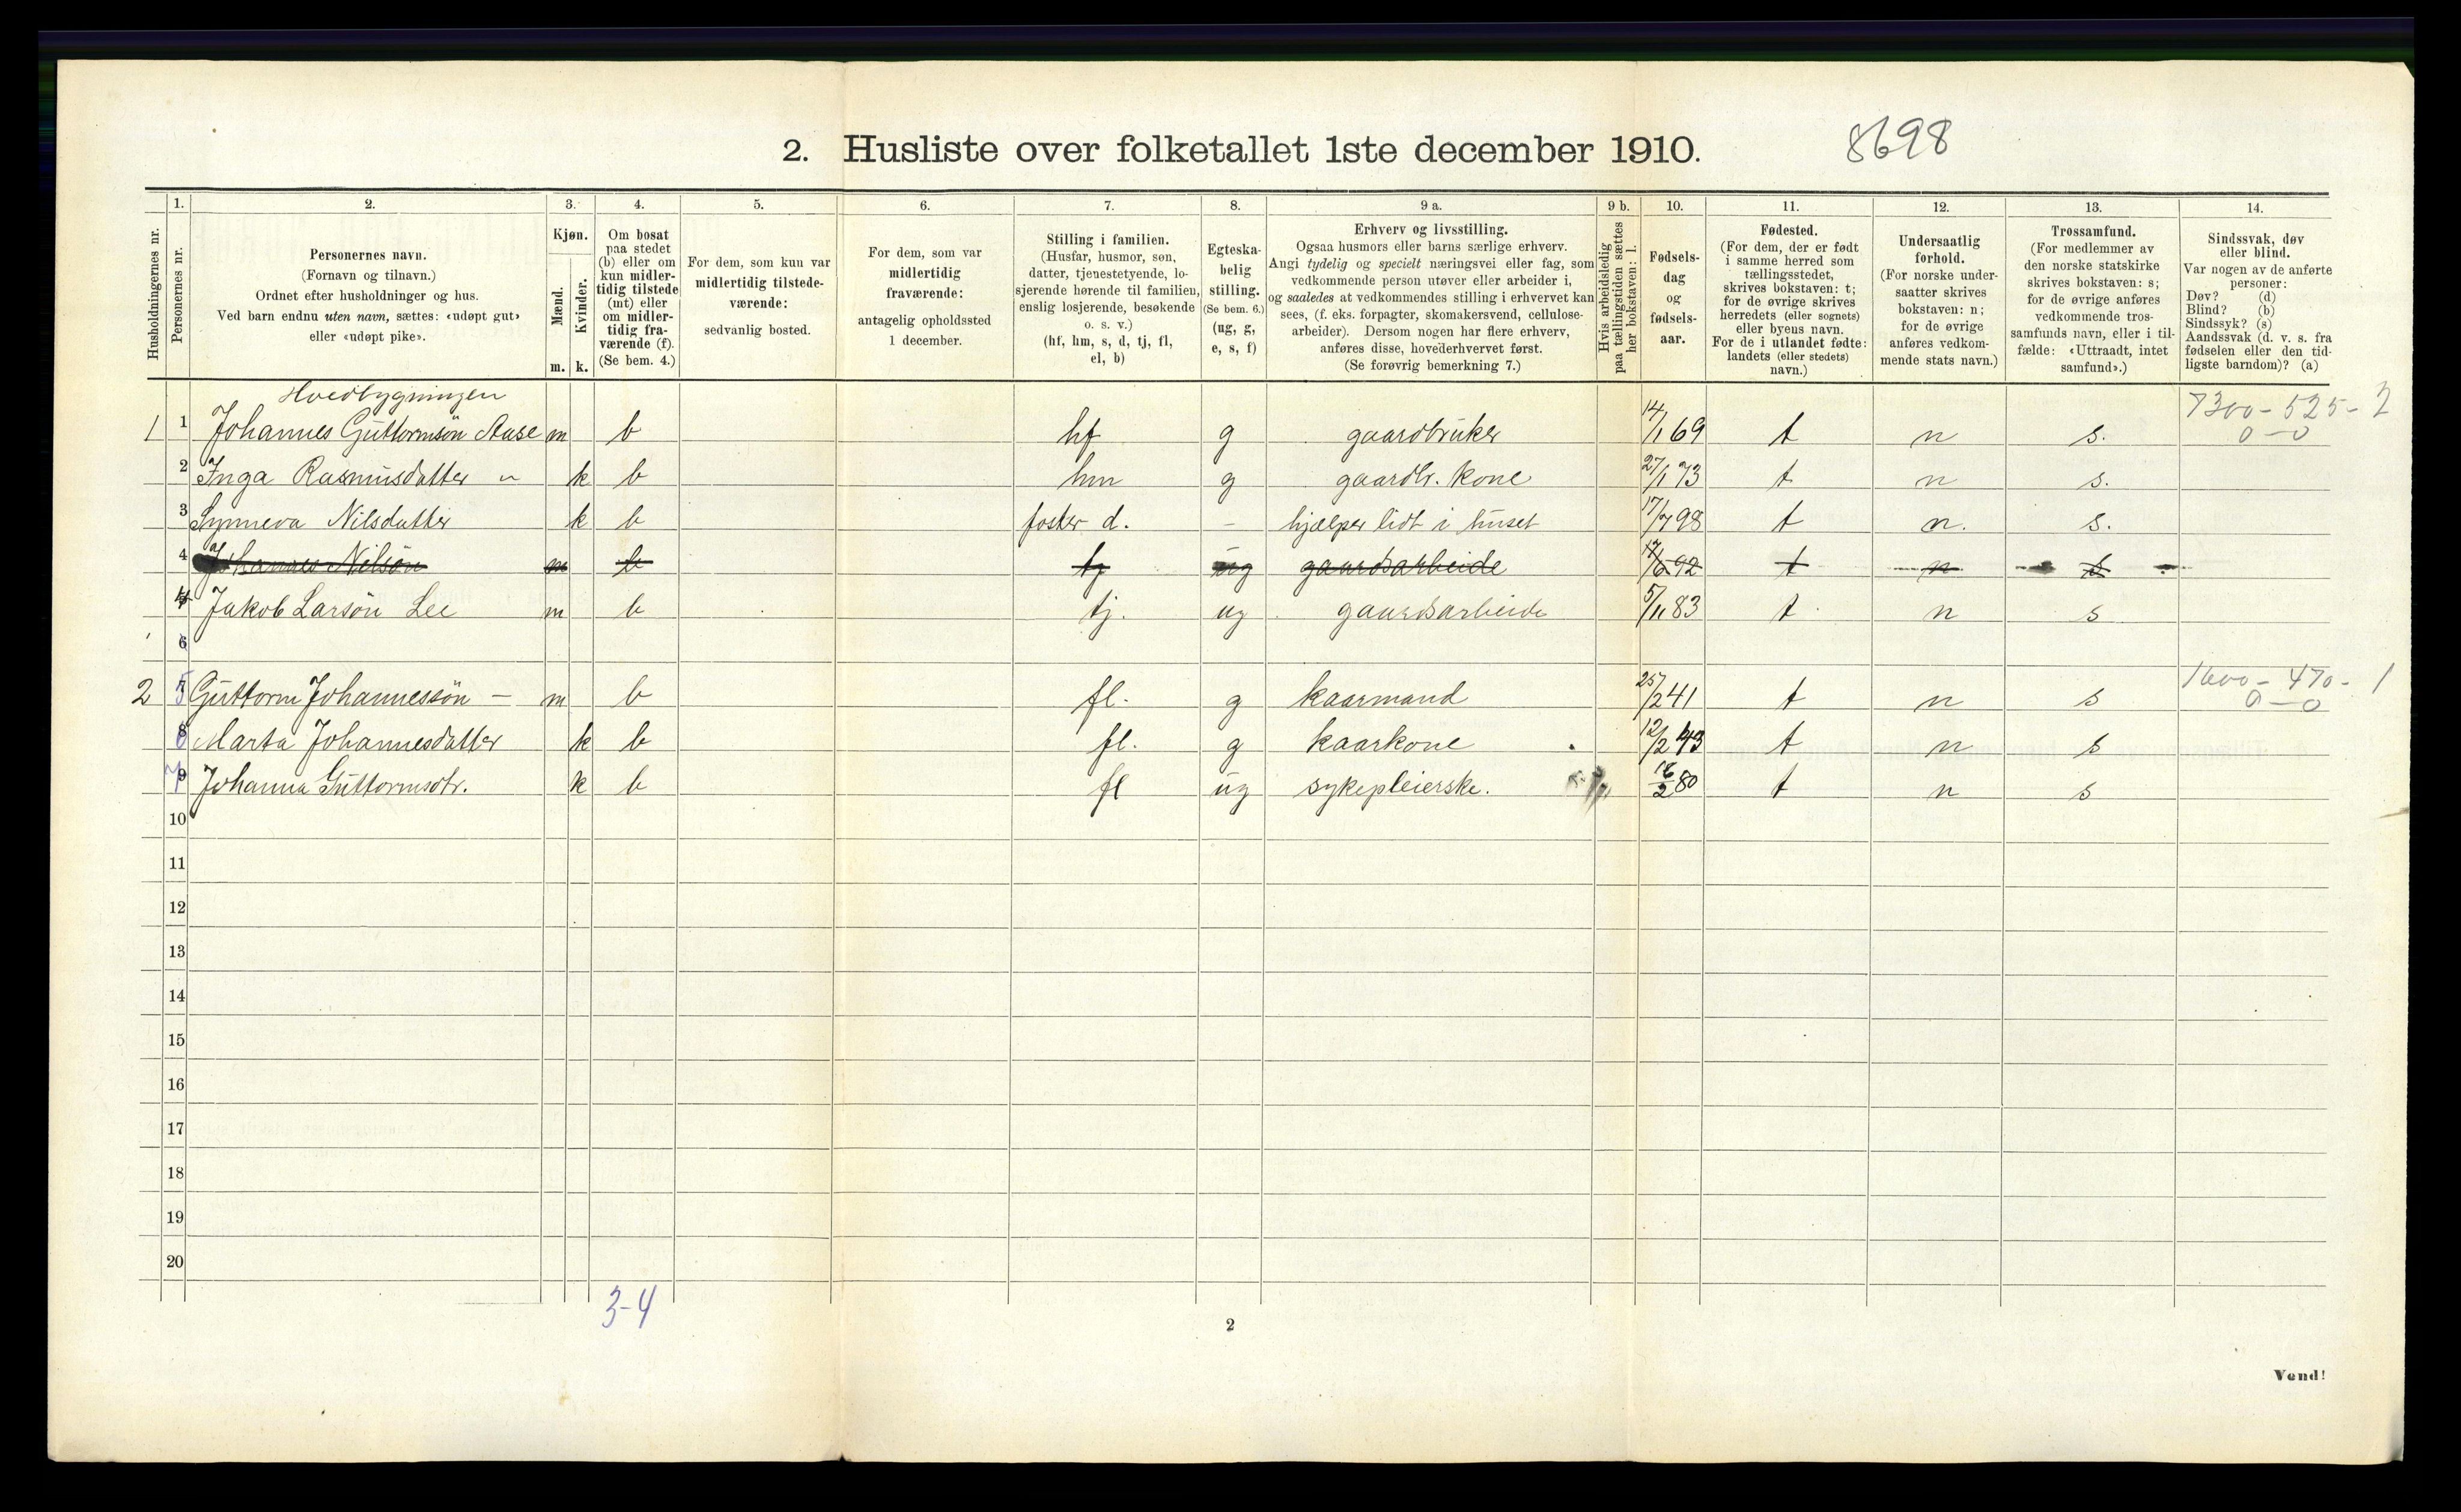 2. Husliste over folketallet 1ste december 1910.
8698
Husholdningernes nr.
1.
Personernes nr.
2.
Personernes navn.
(Fornavn og tilnavn.)
Ordnet efter husholdninger og hus.
Ved barn endnu uten navn, sættes: «udøpt gut»
eller «udøpt pike».
3.
Kjøn.
Mænd.
Kvinder.
m. k.
4.
Om bosat
paa stedet
(b) eller om
kun midler-
tidig tilstede
(mt) eller
om midler-
tidig fra-
værende (f).
(Se bem. 4.)
5.
For dem, som kun var
midlertidig tilstede-
værende:
sedvanlig bosted.
6.
For dem, som var
midlertidig
fraværende:
antagelig opholdssted
1 december.
7.
Stilling i familien.
(Husfar, husmor, søn,
datter, tjenestetyende, lo-
sjerende hørende til familien,
enslig losjerende, besøkende
o. s. v.)
(hf, hm, s, d, tj, fl,
el, b)
8.
Egteska-
belig
stilling.
(Se bem. 6.)
(ug, g,
e, s, f)
9 a.
Erhverv og livsstilling.
Ogsaa husmors eller barns særlige erhverv.
Angi tydelig og specielt næringsvei eller fag, som
vedkommende person utøver eller arbeider i,
og saaledes at vedkommendes stilling i erhvervet kan
sees, (f. eks. forpagter, skomakersvend, cellulose-
arbeider). Dersom nogen har flere erhverv,
anføres disse, hovederhvervet først.
(Se forøvrig bemerkning 7.)
9 b.
Hvis arbeidsledig
paa tællingstiden sættes
her bokstaven: l.
10.
Fødsels-
dag
og
fødsels-
aar.
11.
Fødested.
(For dem, der er født
i samme herred som
tællingsstedet,
skrives bokstaven: t;
for de øvrige skrives
herredets (eller sognets)
eller byens navn.
For de i utlandet fødte:
landets (eller stedets)
navn.)
12.
Undersaatlig
forhold.
(For norske under-
saatter skrives
bokstaven: n;
for de øvrige
anføres vedkom-
mende stats navn.)
13.
Trossamfund.
(For medlemmer av
den norske statskirke
skrives bokstaven: s;
for de øvrige anføres
vedkommende tros-
samfunds navn, eller i til-
fælde: «Uttraadt, intet
samfund».)
14.
Sindssvak, døv
eller blind.
Var nogen av de anførte
personer:
Døv? (d)
Blind? (b)
Sindssyk? (s)
Aandssvak (d. v. s. fra
fødselen eller den tid-
ligste barndom)? (a)
Hvedbygningen
7300 - 525 - 2
1 1 Johannes Guttormsön Aase m b hf g gaardbruker 14/1 69 t n s. 0 - 0
2 Inga Rasmusdatter " k b hm g gaardbr. kone 27/1 73 t n s.
3 Synneva Nilsdatter k b foster d. - hjælper lidt i huset 17/7 98 t n. s.
4 Johannes Nilsön m b tj ug gaardsarbeide 17/6 92 t n s
4 Jakob Larsön Lee m b tj. ug gaardsarbeide 5/11 83 t n s
6
1600 - 470 - 1
2 5 Guttorm Johannessön - m b fl. g kaarmand 25/2 41 t n s 0 - 0
6 8 Marta Johannesdatter k b fl. g kaarkone 12/2 43 t n s
7 9 Johanna Guttormsdtr. k b fl ug sykepleierske. 16/2 80 t n s
10
11
12
13
14
15
16
17
18
19
20
3-4
2
Vend!